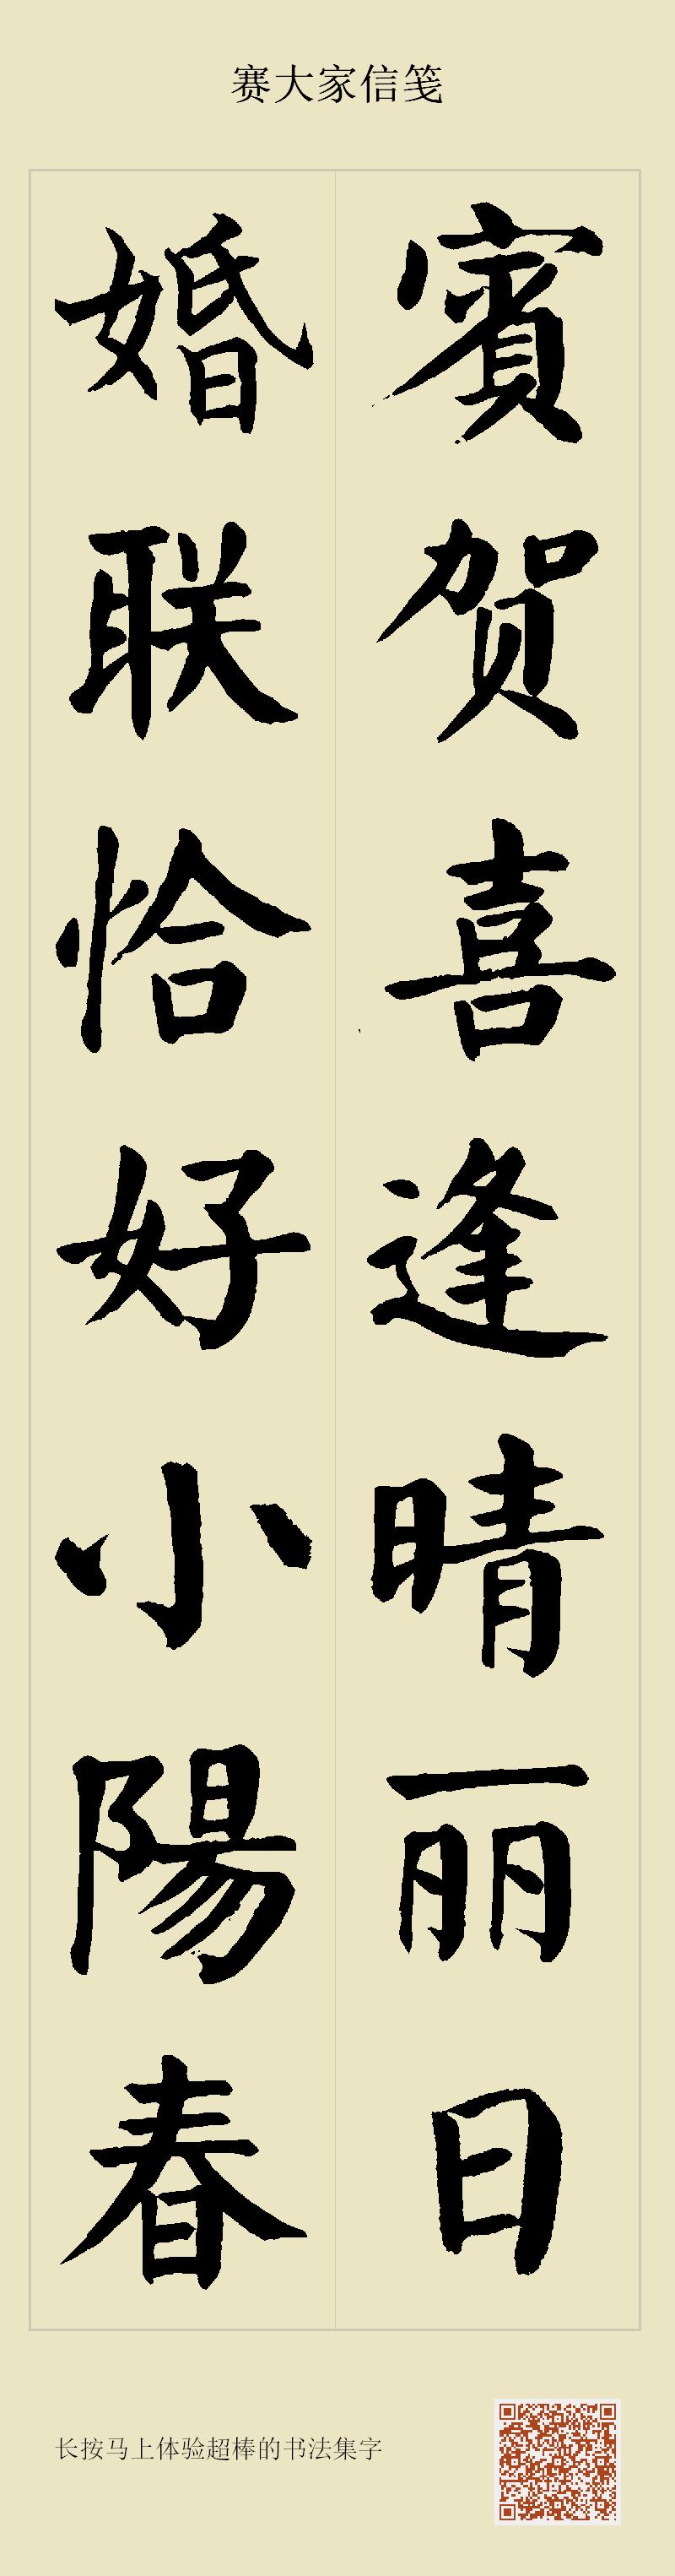 赛大家信笺
賓贺喜逢晴丽日
婚联恰好小陽春
长按马上体验超棒的书法集字